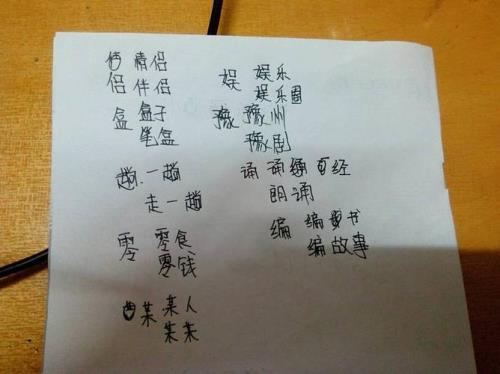 侣 情侣
侣 伴侣
盒 盒子
笔盒
趟 一趟
走一趟
零 零食
零钱
某 某人
某某
娱 娱乐
娱乐圈
豫 豫州
豫剧
诵 诵经
朗诵
编 编书
编故事